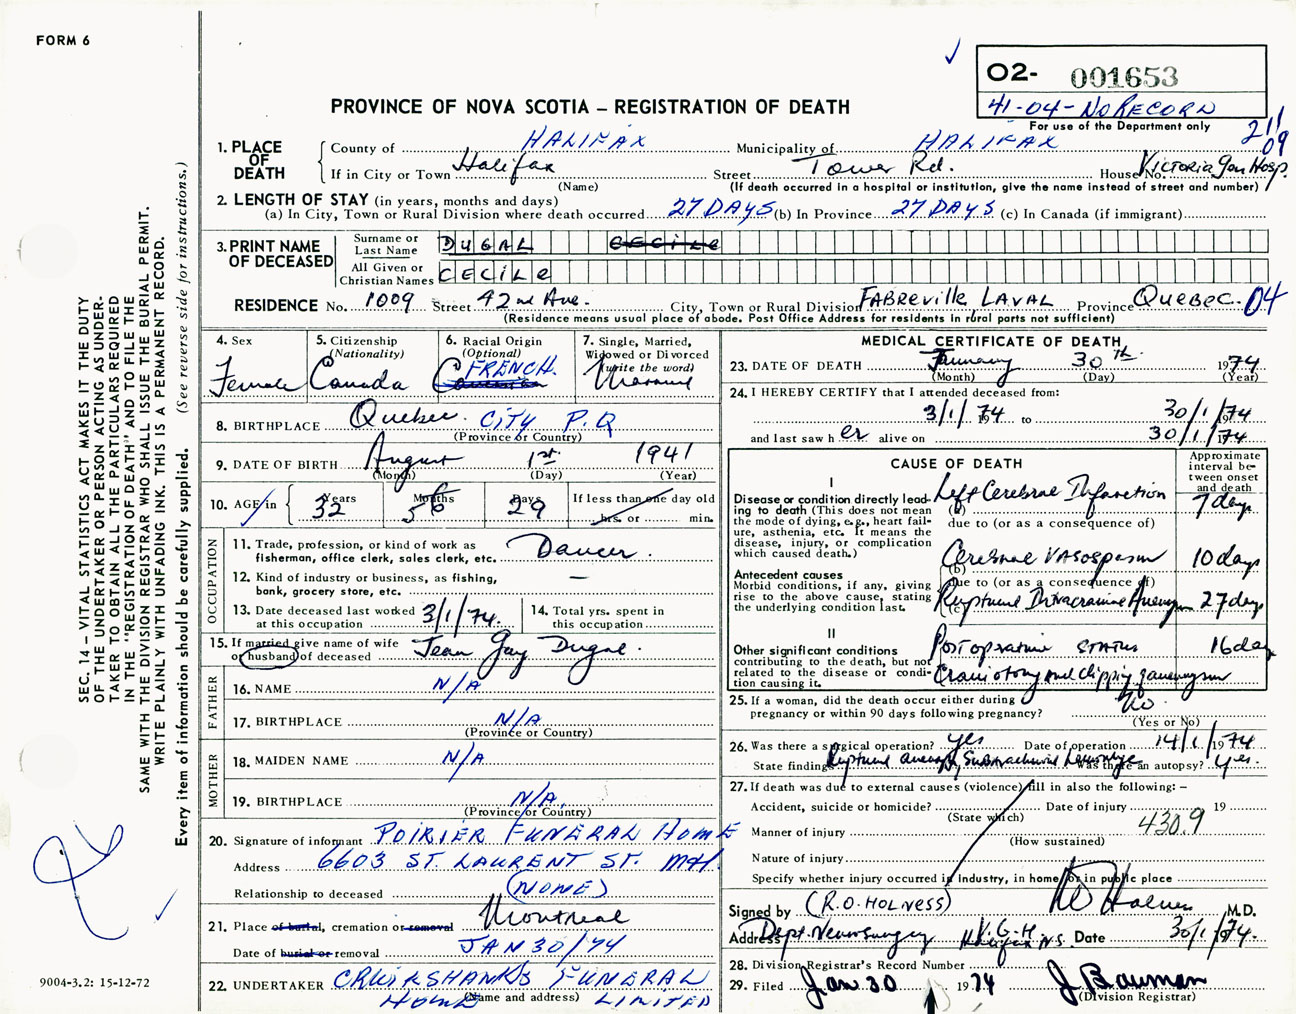 FORM 6
O2- 001653
41-04-NO RECORD
For use of the Department only
211
09
PROVINCE OF NOVA SCOTIA – REGISTRATION OF DEATH
1. PLACE OF DEATH
County of HALIFAX Municipality of HALIFAX
If in City or Town Halifax Street Tower Rd. House No. Victoria Gen Hosp.
(Name) (If death occurred in a hospital or institution, give the name instead of street and number)
2. LENGTH OF STAY (in years, months and days)
(a) In City, Town or Rural Division where death occurred 27 DAYS (b) In Province 27 DAYS (c) In Canada (if immigrant)
3. PRINT NAME OF DECEASED
Surname or Last Name DUGAL CECILE
All Given or Christian Names CECILE
RESIDENCE No. 1009 Street 42nd Ave. City, Town or Rural Division FABREVILLE LAVAL Province QUEBEC. 04
(Residence means usual place of abode. Post Office Address for residents in rural parts not sufficient)
4. Sex
Female
5. Citizenship
(Nationality)
Canada
6. Racial Origin
(Optional)
FRENCH.
7. Single, Married, Widowed or Divorced
(write the word)
Married
8. BIRTHPLACE Quebec. CITY P.Q
(Province or Country)
9. DATE OF BIRTH August 1st 1941
(Month) (Day) (Year)
10. AGE in Years 32 Months 5 Days 29
If less than one day old
hrs. or min.
OCCUPATION
11. Trade, profession, or kind of work as fisherman, office clerk, sales clerk, etc. Dancer.
12. Kind of industry or business, as fishing, bank, grocery store, etc. —
13. Date deceased last worked at this occupation 3/1/74.
14. Total yrs. spent in this occupation
15. If married give name of wife or husband of deceased Jean Guy Dugal.
FATHER
16. NAME N/A
17. BIRTHPLACE N/A
(Province or Country)
MOTHER
18. MAIDEN NAME N/A
19. BIRTHPLACE N/A.
(Province or Country)
20. Signature of informant POIRIER FUNERAL HOME
Address 6603 ST. LAURENT ST. Mtl.
Relationship to deceased (NONE)
21. Place of burial, cremation or removal Montreal
Date of burial or removal JAN 30/74
22. UNDERTAKER CRUIKSHANKS FUNERAL
HOME LIMITED
(Name and address)
MEDICAL CERTIFICATE OF DEATH
23. DATE OF DEATH January 30th 1974
(Month) (Day) (Year)
24. I HEREBY CERTIFY that I attended deceased from:
3/1/74 to 30/1/74
and last saw her alive on 30/1/74
CAUSE OF DEATH
Approximate interval between onset and death
I
Disease or condition directly leading to death (This does not mean the mode of dying, e.g., heart failure, asthenia, etc. It means the disease, injury, or complication which caused death.)
(a) Left Cerebral Infarction 7 days
due to (or as a consequence of)
Antecedent causes
Morbid conditions, if any, giving rise to the above cause, stating the underlying condition last.
(b) Cerebral VASOSPASM 10 days
due to (or as a consequence of)
(c) Ruptured Intracranial Aneurysm 27 days
II
Other significant conditions
contributing to the death, but not related to the disease or condition causing it.
Postoperative STATUS 16 days
Craniotomy and clipping of aneurysm
25. If a woman, did the death occur either during pregnancy or within 90 days following pregnancy? No.
(Yes or No)
26. Was there a surgical operation? yes Date of operation 14/1/1974
State findings Ruptured aneurysm, Subarachnoid hemorrhage Was there an autopsy? Yes.
27. If death was due to external causes (violence) fill in also the following: –
Accident, suicide or homicide? Date of injury 19
(State which)
Manner of injury 430.9
(How sustained)
Nature of injury
Specify whether injury occurred in industry, in home, or in public place
Signed by (R.O. HOLNESS) RO Holness M.D.
Address Dept. Neurosurgery V.G.H. Halifax N.S. Date 30/1/1974.
28. Division Registrar's Record Number
29. Filed Jan 30 1974 J Bauman
(Division Registrar)
SEC. 14 – VITAL STATISTICS ACT MAKES IT THE DUTY
OF THE UNDERTAKER OR PERSON ACTING AS UNDERTAKER TO OBTAIN ALL THE PARTICULARS REQUIRED
IN THE "REGISTRATION OF DEATH" AND TO FILE THE
SAME WITH THE DIVISION REGISTRAR WHO SHALL ISSUE THE BURIAL PERMIT.
WRITE PLAINLY WITH UNFADING INK. THIS IS A PERMANENT RECORD.
Every item of information should be carefully supplied. (See reverse side for instructions.)
9004-3.2: 15-12-72